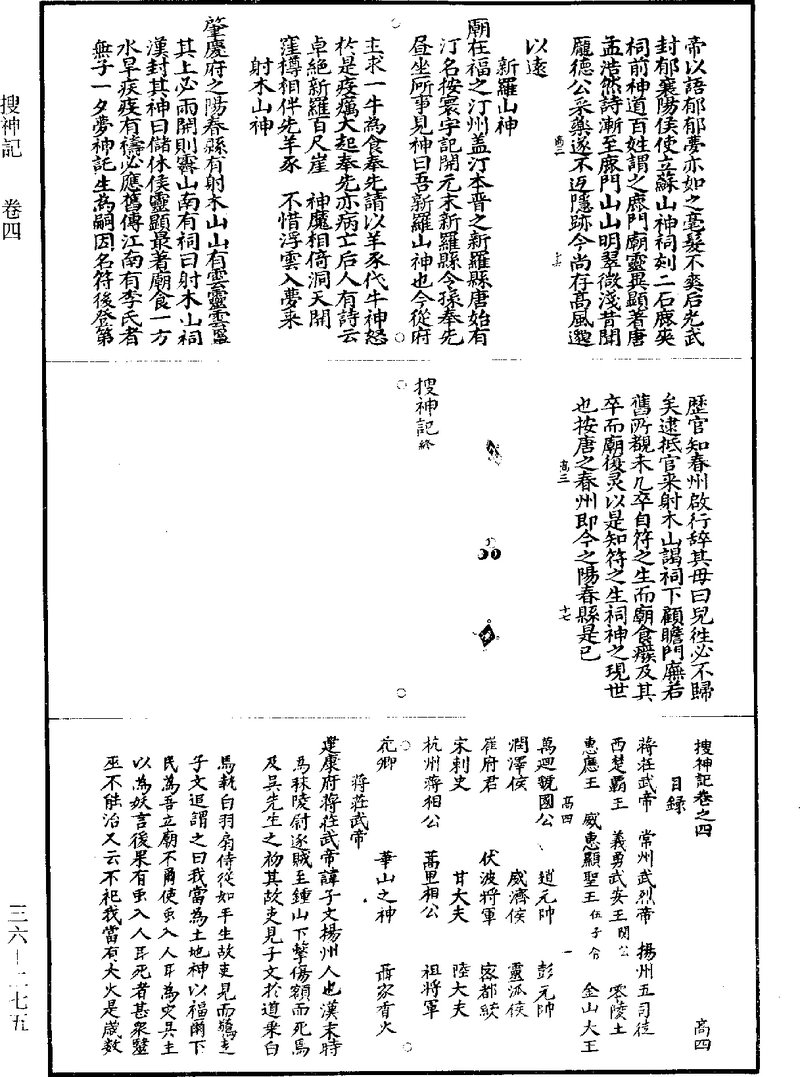 搜神記 卷四
三六—二七五
帝以語郁郁夢亦如之毫髮不爽后光武
封郁襄陽侯使立蘇山神祠刻二石鹿夾
祠前神道百姓謂之鹿門廟靈異顯著唐
孟浩然詩漸至鹿門山山明翠微淺昔聞
龐德公采藥遂不返隱跡今尚存高風邈
高三
以遠
新羅山神
廟在福之汀州盖汀本晋之新羅縣唐始有
汀名按寰宇記開元末新羅縣令孫奉先
昼坐㕔事見神曰吾新羅山神也今從府
主求一牛為食奉先請以羊豕代牛神怒
於是疫癘大起奉先亦病亡后人有詩云
卓絕新羅百尺崖 神魔相倚洞天開
窪樽相伴先羊豕 不惜浮雲入夢来
射木山神
肇慶府之陽春縣有射木山山有雲靈雲䨇
其上必雨開則霽山南有祠曰射木山祠
漢封其神曰儲休侯靈顯最著廟食一方
水旱疾疫有禱必應舊傳江南有李氏者
無子一夕夢神託生為嗣因名符後登第
歷官知春州啟行辞其母曰兒徃必不歸
矣逮抵官来射木山謁祠下顧瞻門廡若
舊所覩未几卒自符之生而廟食癈及其
卒而廟復灵以是知符之生祠神之現世
也按唐之春州即今之陽春縣是已
高三 十七
搜神記終
搜神記卷之四 高四
目録
蒋莊武帝 常州武烈帝 揚州五司徒
西楚霸王 義勇武安王関公 零陵王
惠應王 威惠顯聖王伍子令 金山大王
高四 一
萬廻虢國公 道元帥 彭元帥
潤澤侯 威濟侯 靈派侯
崔府君 伏波將軍 客都統
宋刺史 甘大夫 陸大夫
杭州蒋相公 蒿里相公 祖將軍
花卿 華山之神 聶家香火
蒋莊武帝
建康府蒋莊武帝諱子文揚州人也漢末時
為秣陵尉逐賊至鍾山下擊傷額而死焉
及吴先生之初其故吏見子文於道乘白
馬執白羽扇侍從如平生故吏見而驚走
子文追謂之曰我當為土地神以福爾下
民為吾立廟不爾使虫入人耳為灾吴主
以為妖言後果有虫入人耳死者甚衆毉
巫不能治又云不祀我當有大火是歲数